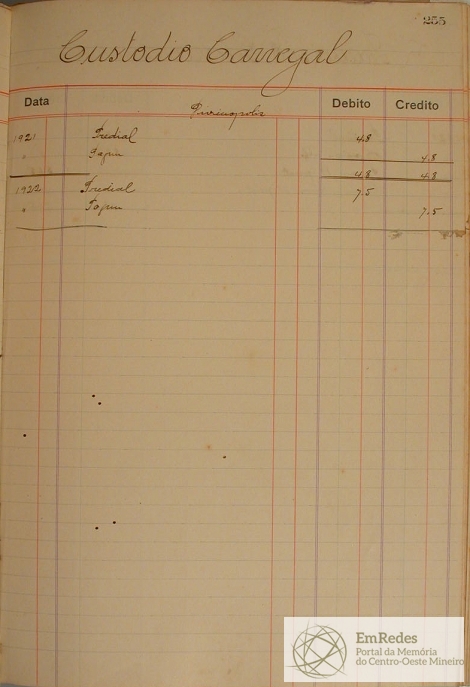 255
Custodio Carregal
Data Debito Credito
1921 Predial 4.8
" 4.8
4.8 4.8
1922 Predial 7.5
" 7.5
EmRedes
Portal da Memória
do Centro-Oeste Mineiro